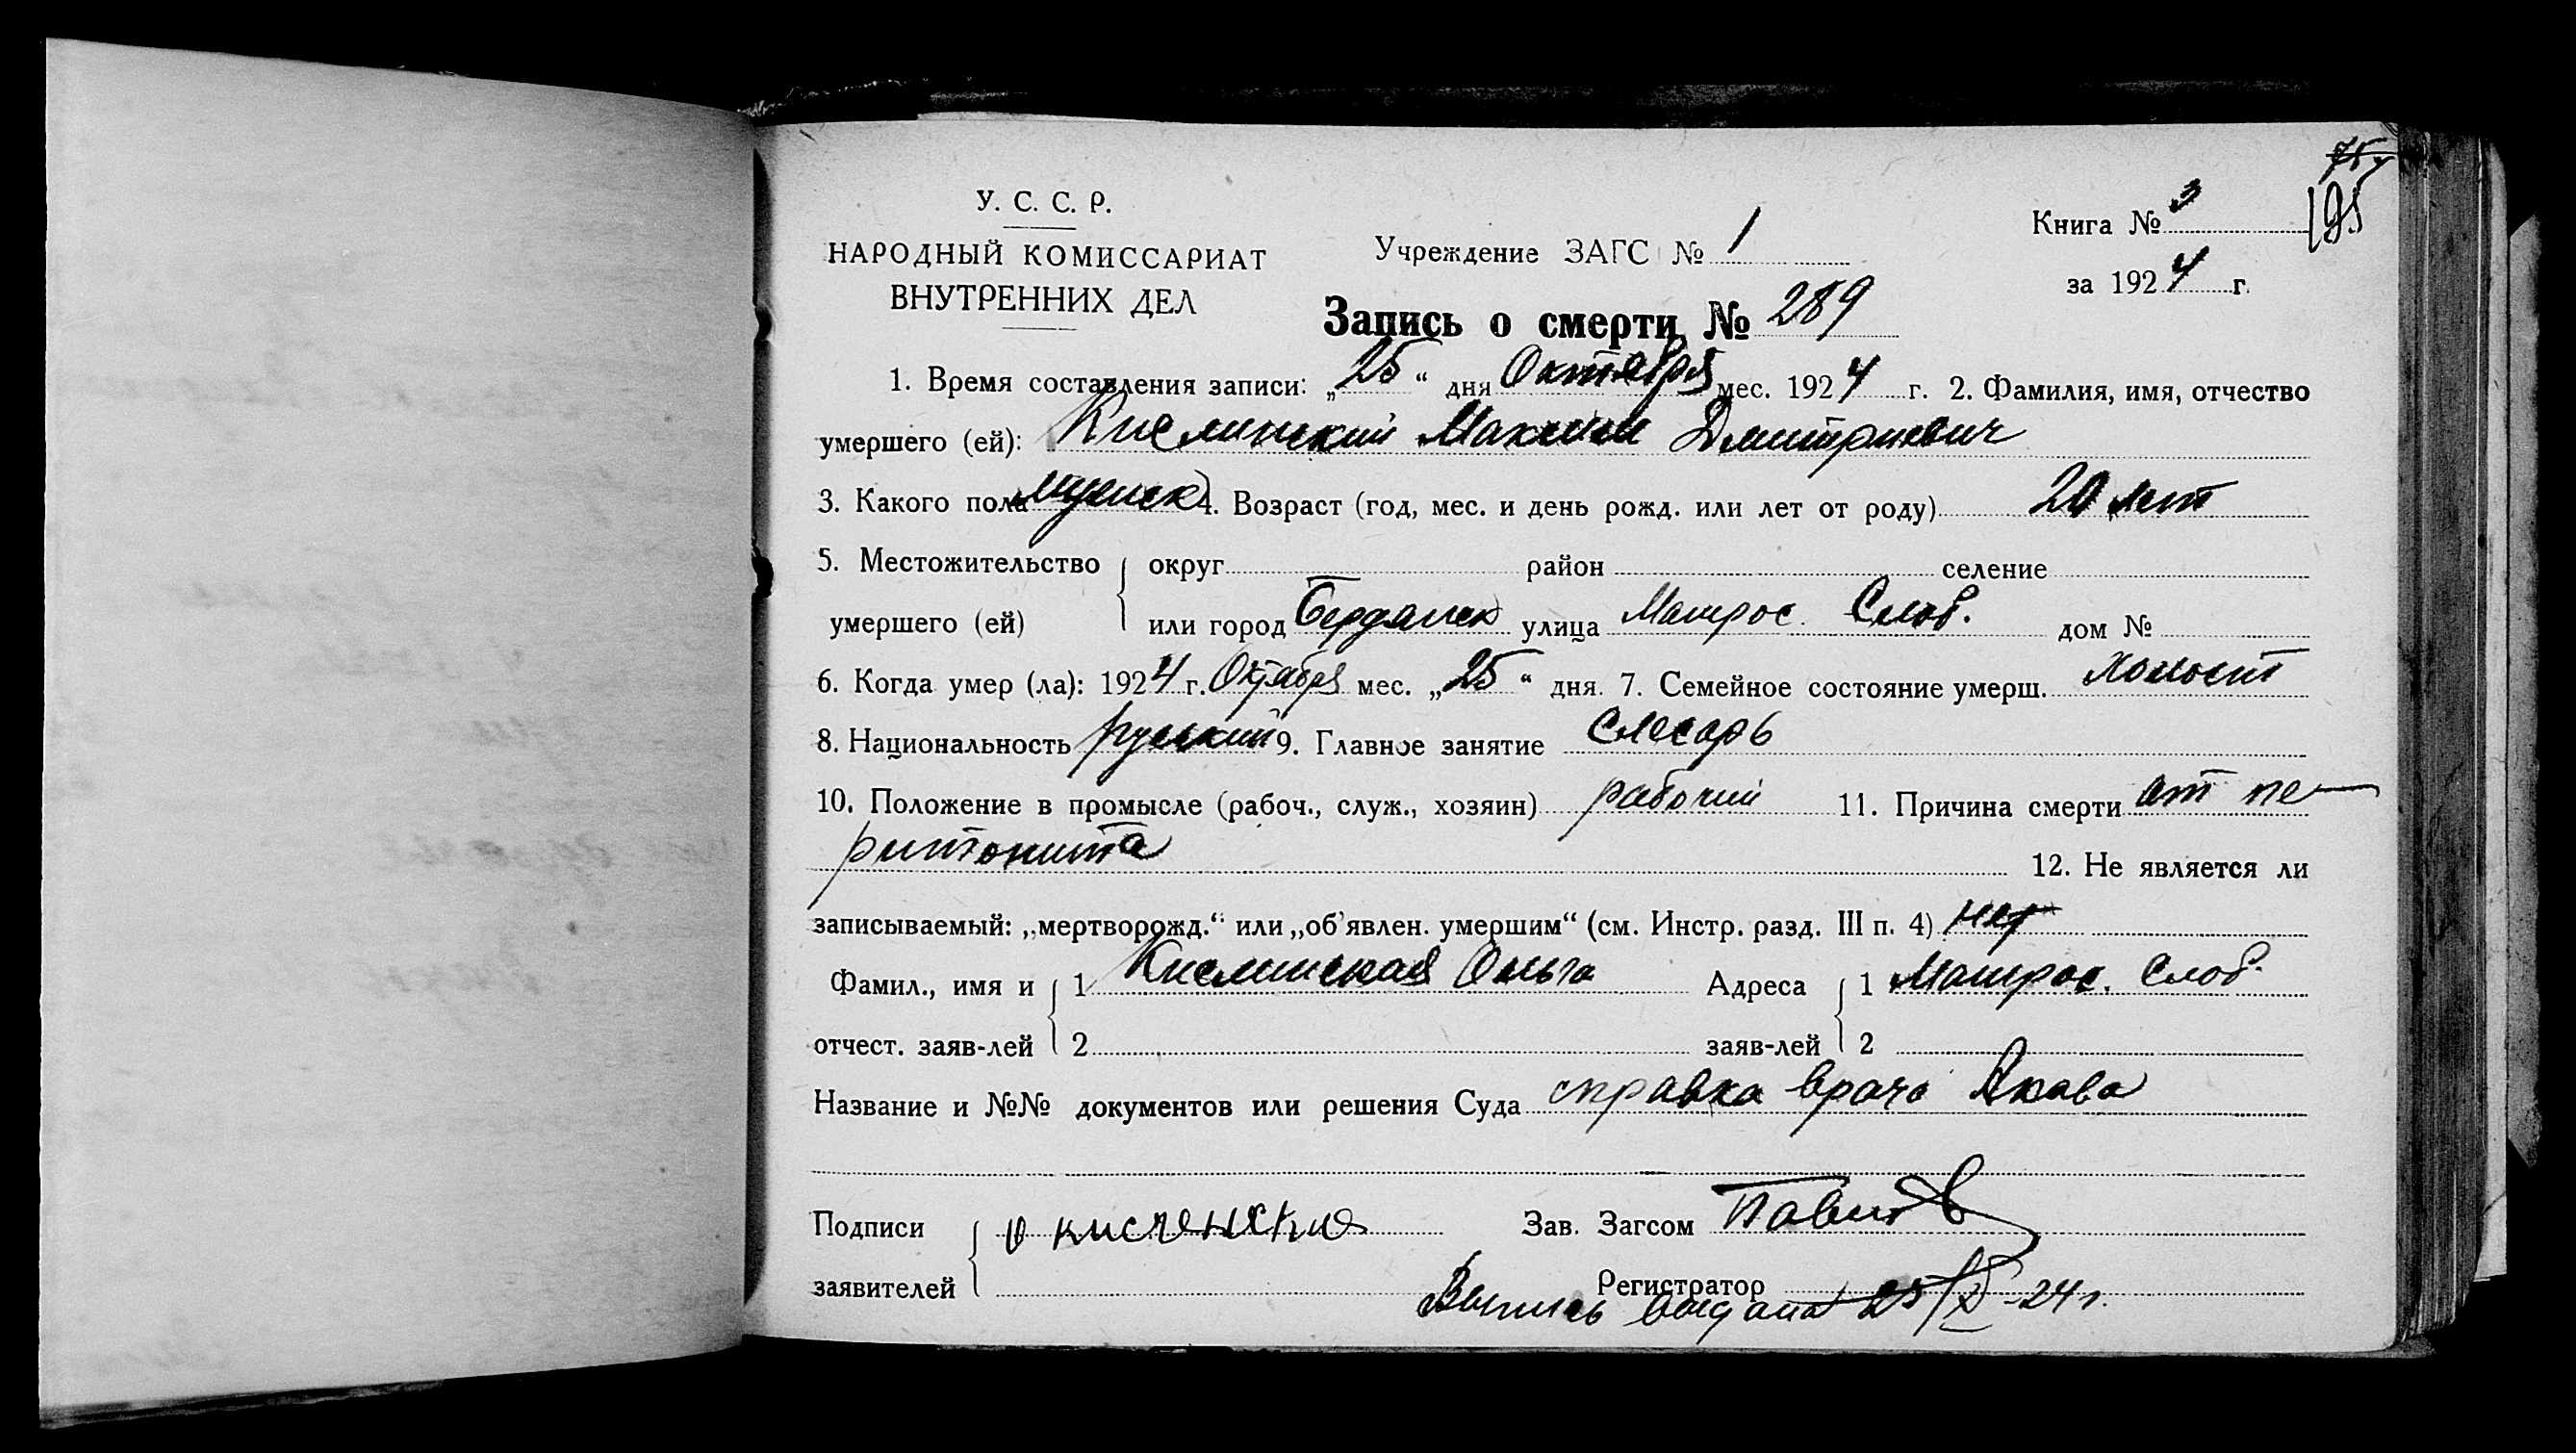 195
У. С. С. Р.
НАРОДНЫЙ КОМИССАРИАТ
ВНУТРЕННИХ ДЕЛ
Учреждение ЗАГС № 1
Книга № 3
за 1924 г.
Запись о смерти № 289
1. Время составления записи: „25“ дня Октября мес. 1924 г. 2. Фамилия, имя, отчество
умершего (ей): Кислинский Максим Дмитриевич
3. Какого пола мужск 4. Возраст (год, мес. и день рожд. или лет от роду) 20 лет
5. Местожительство округ район селение
умершего (ей) или город Бердянск улица Матрос. Слоб. дом №
6. Когда умер (ла): 1924 г. Октября мес. „25“ дня. 7. Семейное состояние умерш. холост
8. Национальность русский 9. Главное занятие слесарь
10. Положение в промысле (рабоч., служ., хозяин) рабочий 11. Причина смерти от пе-
ритонита 12. Не является ли
записываемый: „мертворожд.“ или „об'явлен. умершим“ (см. Инстр. разд. III п. 4) нет
Фамил., имя и 1 Кислинская Ольга Адреса 1 Матрос. Слоб.
отчест. заяв-лей 2 заяв-лей 2
Название и №№ документов или решения Суда справка врача
Подписи Зав. Загсом
заявителей Регистратор
Выпись выдана 25/X-24 г.